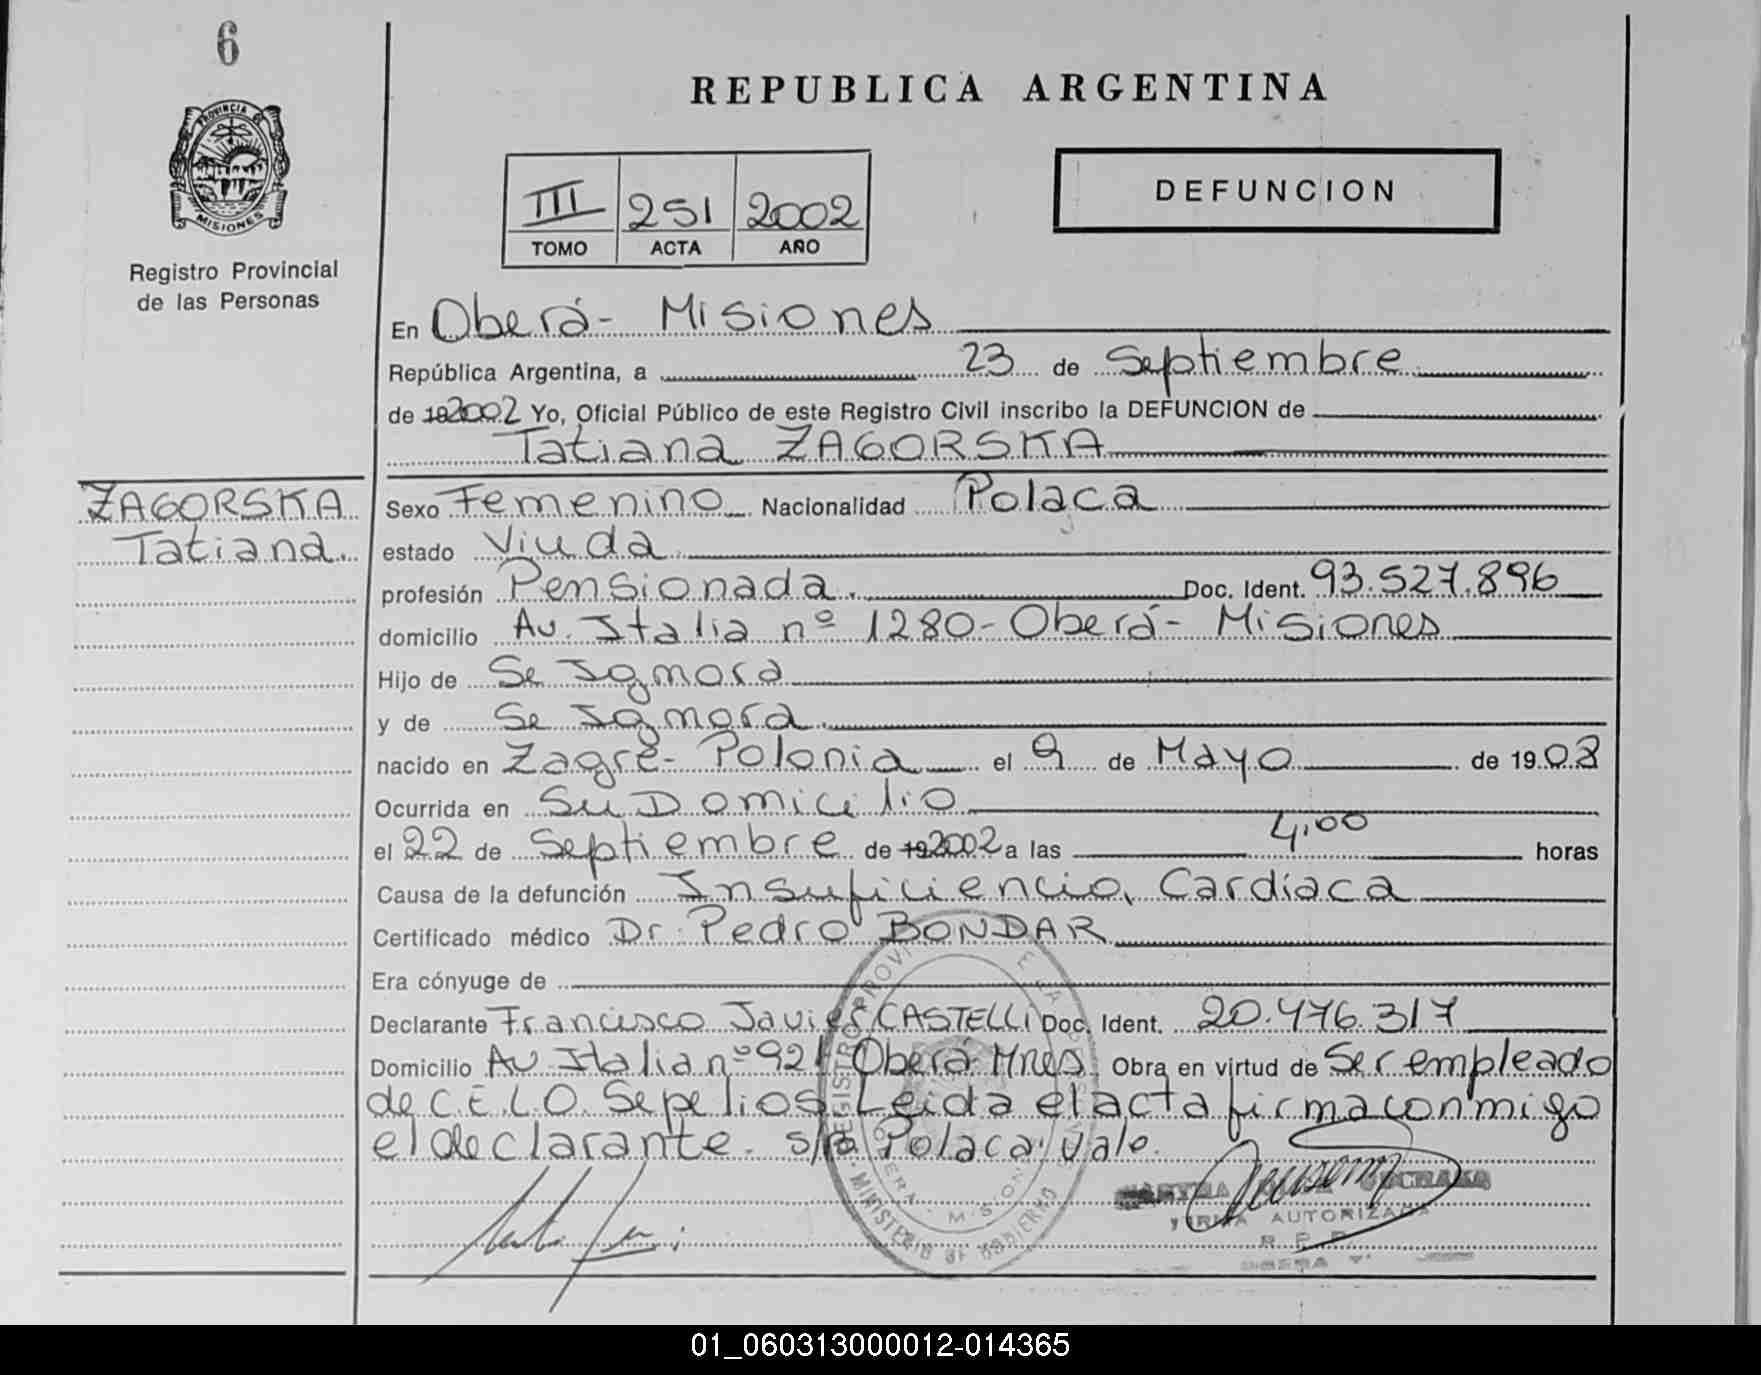 6
REPUBLICA ARGENTINA
PROVINCIA DE
MISIONES
Registro Provincial
de las Personas
III 251 2002
TOMO ACTA AÑO
DEFUNCION
En Oberá - Misiones
República Argentina, a 23 de Septiembre
de 192002 Yo, Oficial Público de este Registro Civil inscribo la DEFUNCION de
Tatiana ZAGORSKA
ZAGORSKA
Tatiana.
Sexo Femenino Nacionalidad Polaca
estado Viuda
profesión Pensionada. Doc. Ident. 93.527.896
domicilio Av. Italia nº 1280 - Oberá - Misiones
Hijo de Se Ignora
y de Se Ignora.
nacido en Zagre - Polonia el 9 de Mayo de 1908
Ocurrida en Su Domicilio
el 22 de Septiembre de 192002 a las 4,00 horas
Causa de la defunción Insuficiencia Cardíaca
Certificado médico Dr. Pedro BONDAR
Era cónyuge de
Declarante Francisco Javier CASTELLI Doc. Ident. 20.476.317
Domicilio Av. Italia nº 921 Oberá Mnes. Obra en virtud de Ser empleado
de C.E.L.O. Sepelios. Leida el acta firma conmigo
el declarante. s/r Polaca: Vale.
FIRMA AUTORIZADA
MINISTERIO DE GOBIERNO
01_060313000012-014365